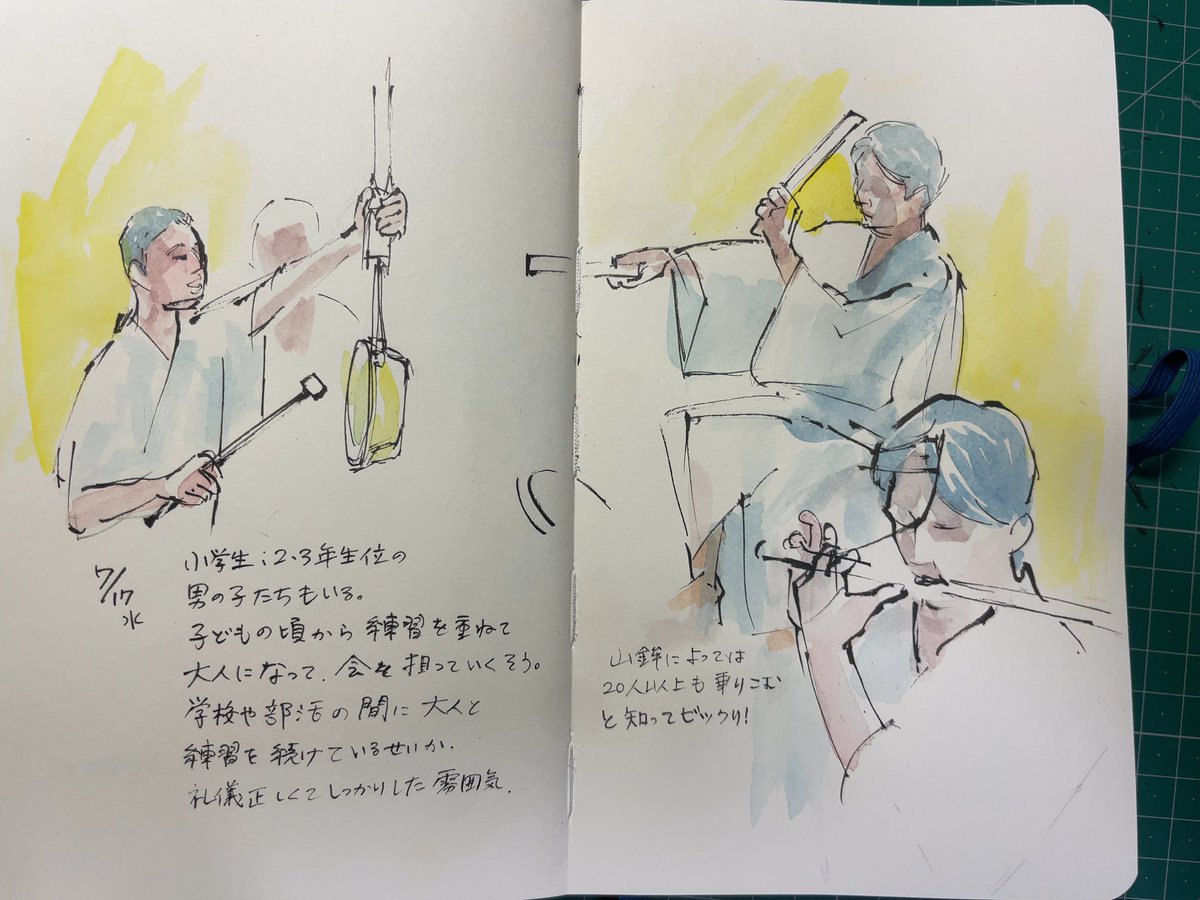 7/17
水
小学生;2・3年生位の
男の子たちもいる。
子どもの頃から練習を重ねて
大人になって、会を担っていくそう。
学校や部活の間に大人と
練習を続けているせいか、
礼儀正しくてしっかりした雰囲気.
山鉾によっては
20人以上も乗りこむ
と知ってビックリ!